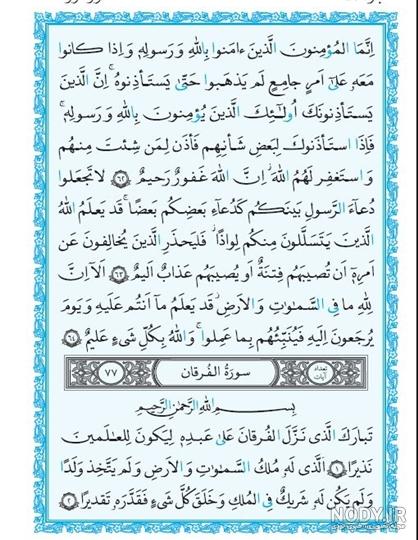 اِنَّمَا المُؤمِنونَ الَّذينَ ءامَنوا بِاللهِ وَ رَسولِهٖ وَ اِذا كانوا
مَعَهٗ عَلىٰٓ اَمرٍ جامِعٍ لَم يَذهَبوا حَتّىٰ يَستَأذِنوهُ ۚ اِنَّ الَّذينَ
يَستَأذِنونَكَ اُولٰٓئِكَ الَّذينَ يُؤمِنونَ بِاللهِ وَ رَسولِهٖ ۚ
فَاِذَا استَأذَنوكَ لِبَعضِ شَأنِهِم فَأذَن لِمَن شِئتَ مِنهُم
وَ استَغفِر لَهُمُ اللهَ ۚ اِنَّ اللهَ غَفورٌ رَحيمٌ ﴿٦٢﴾ لا تَجعَلوا
دُعآءَ الرَّسولِ بَينَكُم كَدُعآءِ بَعضِكُم بَعضًا ۚ قَد يَعلَمُ اللهُ
الَّذينَ يَتَسَلَّلونَ مِنكُم لِواذًا ۚ فَليَحذَرِ الَّذينَ يُخالِفونَ عَن
اَمرِهٖٓ اَن تُصيبَهُم فِتنَةٌ اَو يُصيبَهُم عَذابٌ اَليمٌ ﴿٦٣﴾ اَلآ اِنَّ
لِلّٰهِ ما فِى السَّمٰوٰتِ وَ الاَرضِ ۖ قَد يَعلَمُ مآ اَنتُم عَلَيهِ وَ يَومَ
يُرجَعونَ اِلَيهِ فَيُنَبِّئُهُم بِما عَمِلوا ۗ وَ اللهُ بِكُلِّ شَىءٍ عَليمٌ ﴿٦٤﴾
تعداد آيات سورَةُ الفُرقان ٧٧
بِسمِ اللهِ الرَّحمٰنِ الرَّحيمِ
تَبارَكَ الَّذى نَزَّلَ الفُرقانَ عَلىٰ عَبدِهٖ لِيَكونَ لِلعٰلَمينَ
نَذيرًا ﴿١﴾ اَلَّذى لَهٗ مُلكُ السَّمٰوٰتِ وَ الاَرضِ وَ لَم يَتَّخِذ وَلَدًا
وَ لَم يَكُن لَهٗ شَريكٌ فِى المُلكِ وَ خَلَقَ كُلَّ شَىءٍ فَقَدَّرَهٗ تَقديرًا ﴿٢﴾
NODY.IR